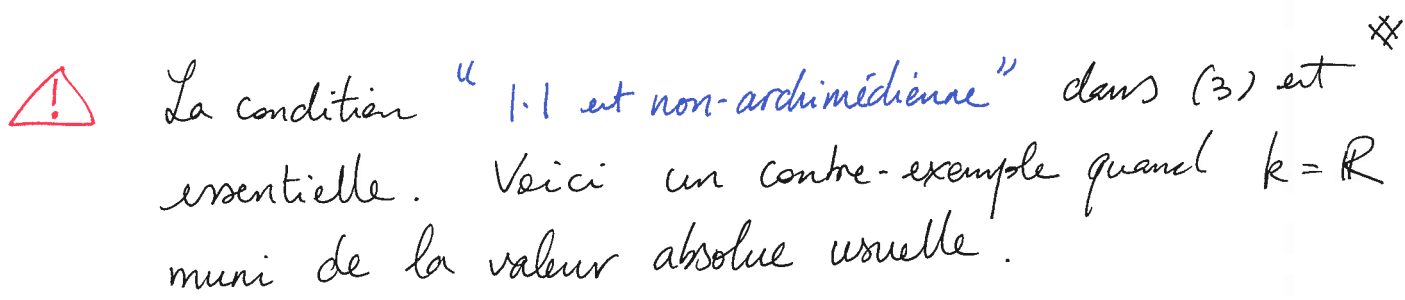 La condition " |·| est non-archimédienne " dans (3) est
essentielle. Voici un contre-exemple quand k = ℝ
muni de la valeur absolue usuelle.